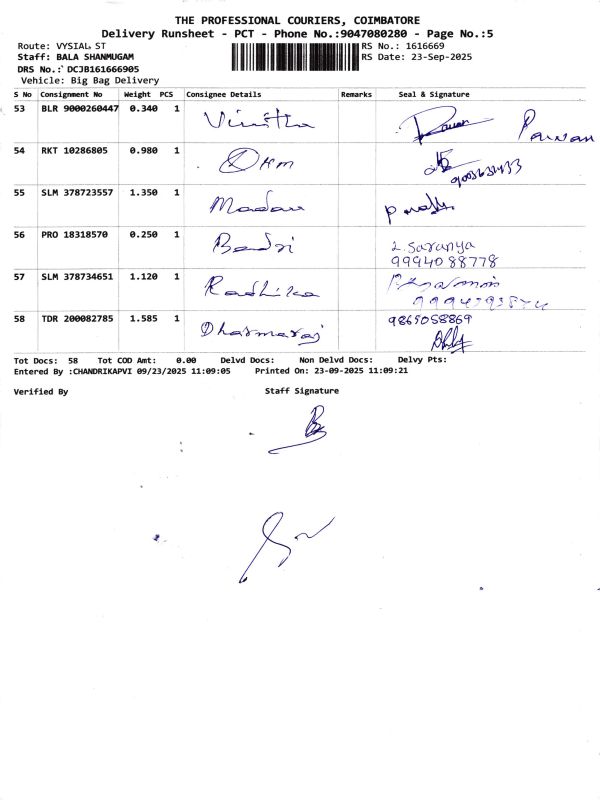 THE PROFESSIONAL COURIERS, COIMBATORE
Delivery Runsheet - PCT - Phone No.:9047080280 - Page No.:5
Route: VYSIAL ST RS No.: 1616669
Staff: BALA SHANMUGAM RS Date: 23-Sep-2025
DRS No.: DCJB161666905
Vehicle: Big Bag Delivery
S No Consignment No Weight PCS Consignee Details Remarks Seal & Signature
53 BLR 9000260447 0.340 1 Vinitha Pawan
54 RKT 10286805 0.980 1
55 SLM 378723557 1.350 1 Madan
56 PRO 18318570 0.250 1 Badri L. Saranya
9994088778
57 SLM 378734651 1.120 1 Radhika
58 TDR 200082785 1.585 1 Dharmaraj 9865058869
Tot Docs: 58 Tot COD Amt: 0.00 Delvd Docs: Non Delvd Docs: Delvy Pts:
Entered By :CHANDRIKAPVI 09/23/2025 11:09:05 Printed On: 23-09-2025 11:09:21
Verified By Staff Signature